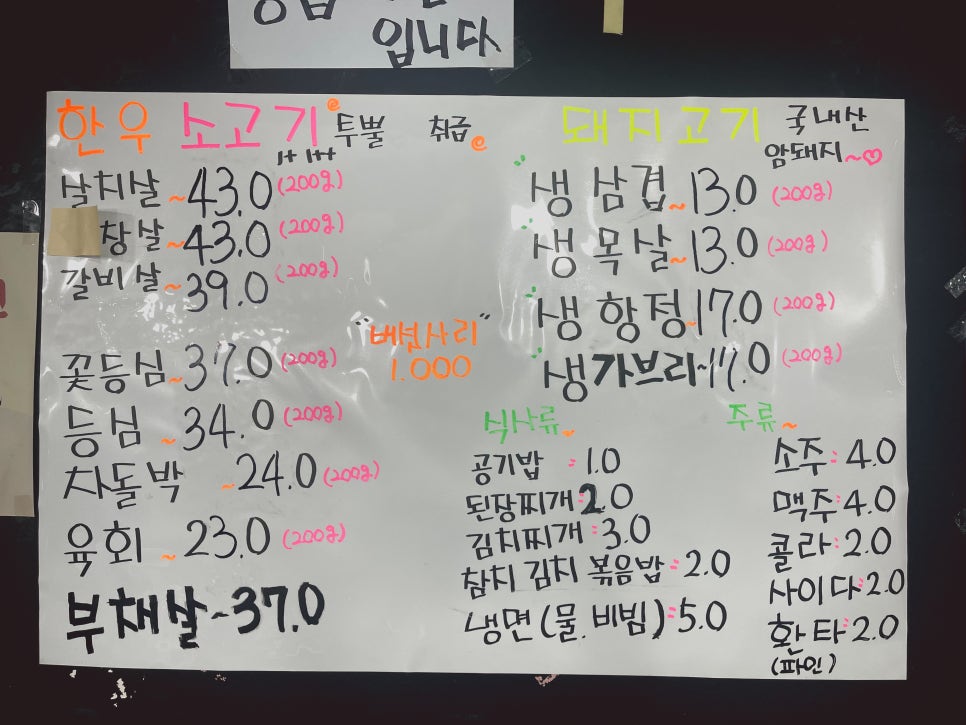 입니다
한우 소고기 투뿔 취급
1+ 1++
살치살~43.0 (200g)
창살~43.0 (200g)
갈비살~39.0 (200g)
꽃등심~37.0 (200g)
등심~34.0 (200g)
차돌박~24.0 (200g)
육회~23.0 (200g)
부채살~37.0
"버섯사리"
1.000
돼지고기 국내산
암돼지~♡
생삼겹~13.0 (200g)
생목살~13.0 (200g)
생항정~17.0 (200g)
생가브리~17.0 (200g)
식사류~
공기밥:1.0
된장찌개:2.0
김치찌개:3.0
참치김치볶음밥:2.0
냉면(물.비빔):5.0
주류~
소주:4.0
맥주:4.0
콜라:2.0
사이다:2.0
환타:2.0
(파인)